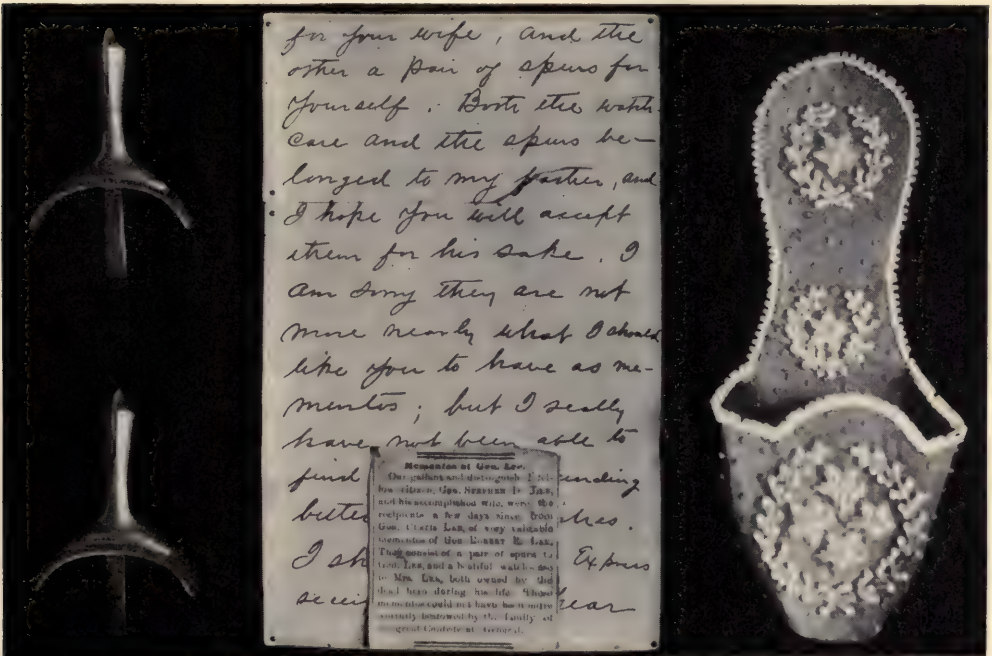 for your wife, and the
other a pair of spurs for
yourself. Both the watch-
case and the spurs be-
longed to my father, and
I hope you will accept
them for his sake. I
am sorry they are not
more nearly what I should
like you to have as me-
mentos; but I really
have not been able to
find
better
I Express
hear
Mementos of Gen. Lee.
Our gallant and distinguish
low citizen, Gen. STEPHEN D. LEE,
and his accomplished wife, were the
recipients a few days since from
Gen. LEE, of very valuable
mementos of Gen ROBERT E. LEE.
They consist of a pair of spurs to
Gen. LEE, and a beautiful watch-case
to Mrs. LEE, both owned by the
dead hero during his life. These
mementos could not have been more
worthily bestowed by the family of
great Confederate General.